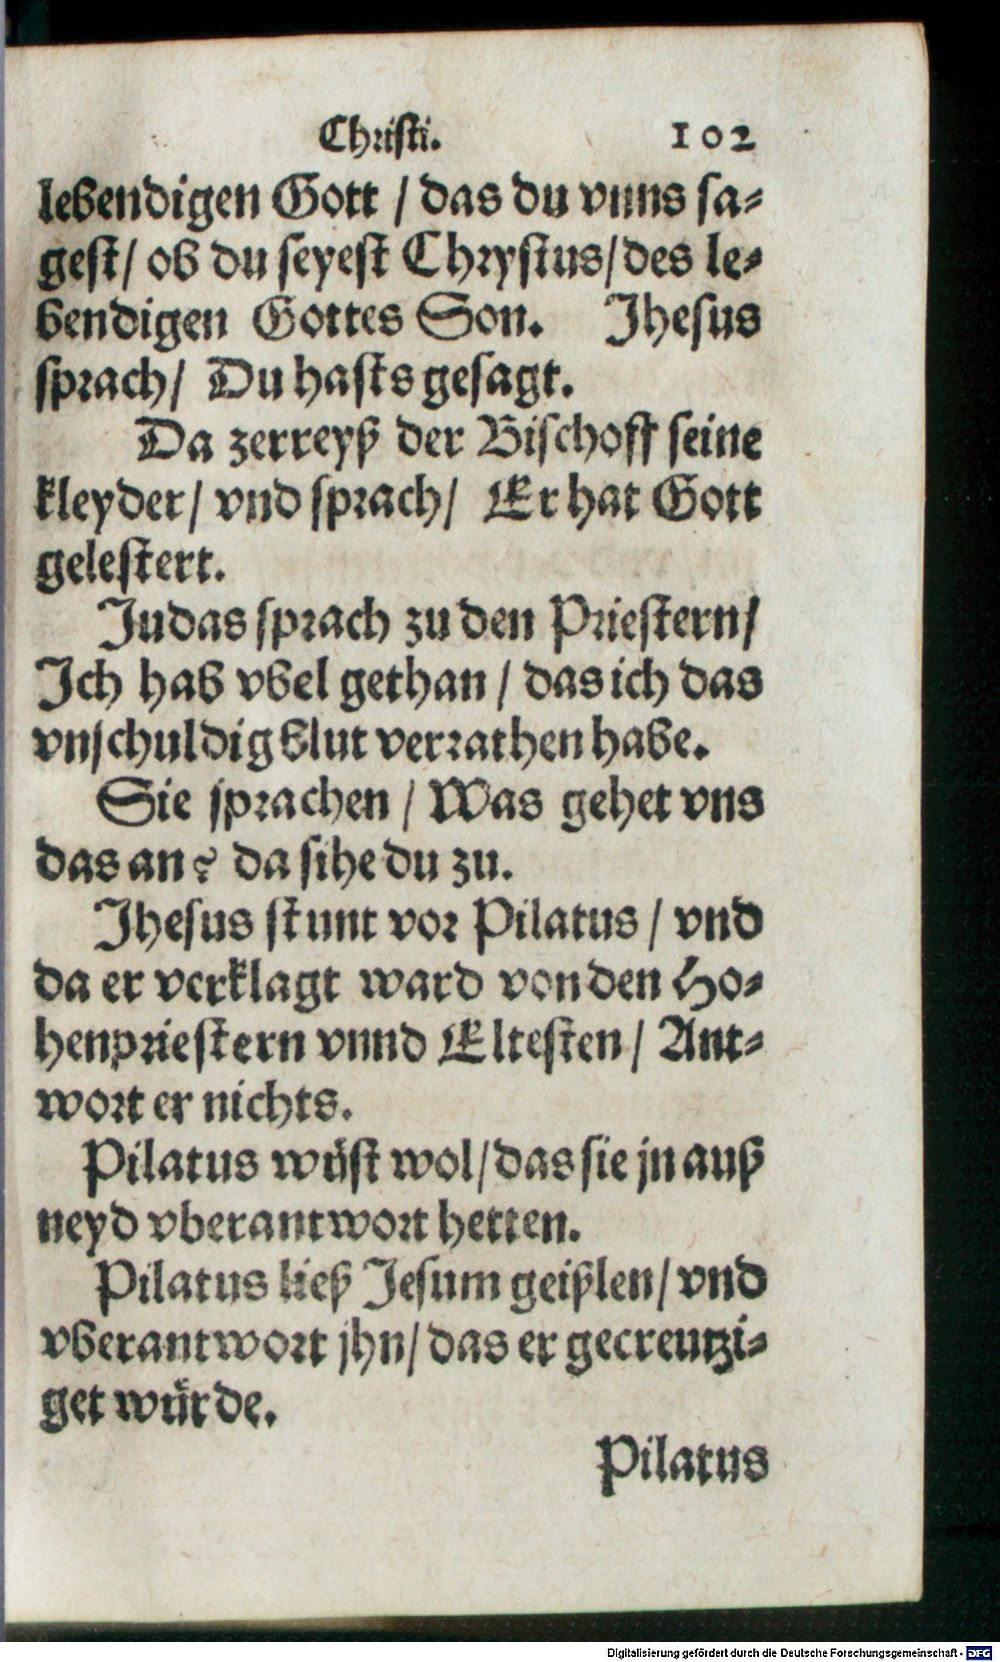 Christi. 102
lebendigen Gott / das du vnns sa⸗
gest / ob du seyest Chrystus / des le⸗
bendigen Gottes Son. Jhesus
sprach / Du hasts gesagt.
Da zerreyß der Bischoff seine
kleyder / vnd sprach / Er hat Gott
gelestert.
Judas sprach zu den Priestern /
Ich hab vbel gethan / das ich das
vnschuldig blut verrathen habe.
Sie sprachen / Was gehet vns
das an? da sihe du zu.
Jhesus stunt vor Pilatus / vnd
da er verklagt ward von den Ho⸗
henpriestern vnnd Eltesten / Ant⸗
wort er nichts.
Pilatus wüst wol / das sie jn auß
neyd vberantwort hetten.
Pilatus ließ Jesum geißlen / vnd
vberantwort jhn / das er gecreutzi⸗
get würde.
Pilatus
Digitalisierung gefördert durch die Deutsche Forschungsgemeinschaft - DFG